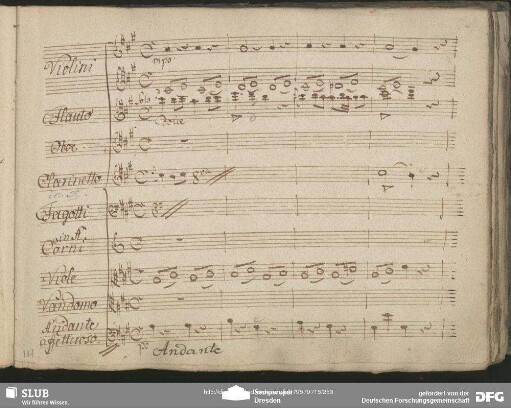 Violini
Flauto
Oboe
Clarinetto
Fagotti
in A
Corni
Viole
Vandomo
Andante
affettuoso.
Andante
SLUB
Wir führen Wissen.
Dresden
gefördert von der
Deutschen Forschungsgemeinschaft
DFG